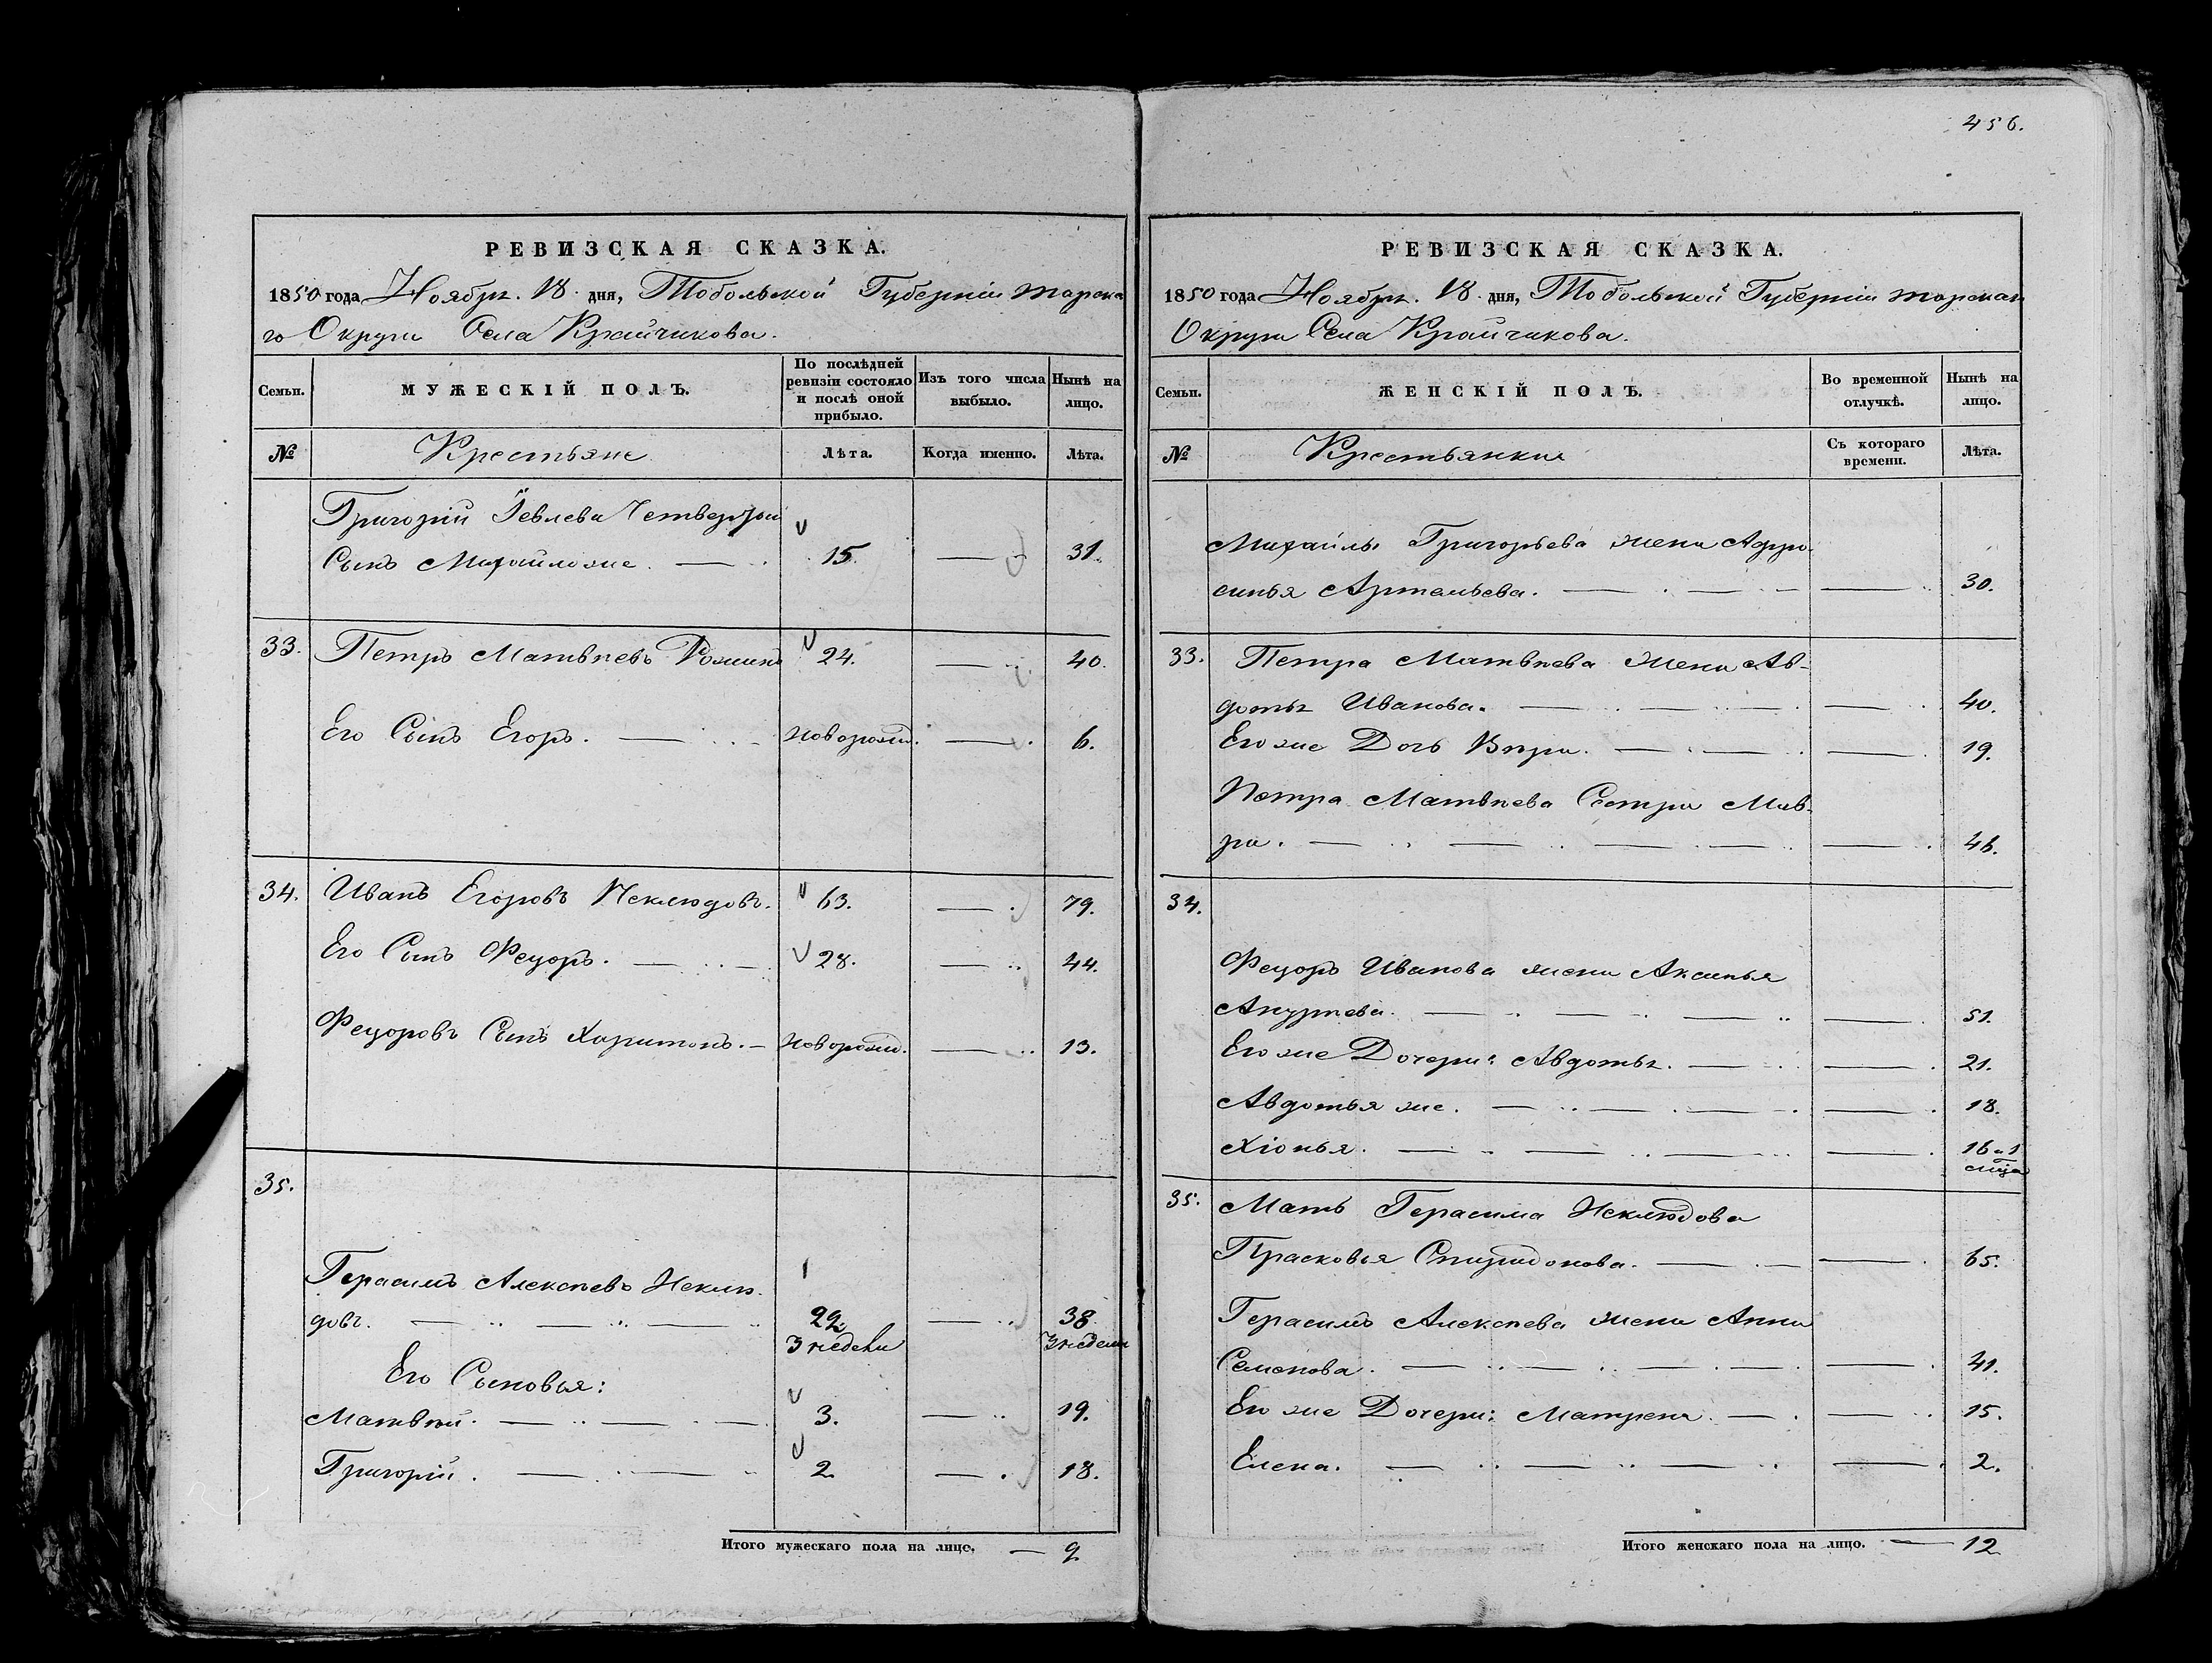 456.
РЕВИЗСКАЯ СКАЗКА.
1850 года Ноября 18 дня, Тобольской Губерніи Тарска
го Округа Села Крайчикова.
Семьи.
МУЖЕСКІЙ ПОЛЪ.
По послѣдней ревизіи состояло и послѣ оной прибыло.
Изъ того числа выбыло.
Нынѣ на лицо.
№ Крестьяне Лѣта. Когда именно. Лѣта.
Григорій Іевлева Четвертой
Сынъ Михайло же. 15. 31.
33. Петръ Матвѣевъ 24. 40.
Его Сынъ Егоръ. новорожд. 6.
34. Иванъ Егоровъ Неклюдовъ. 63. 79.
Его Сынъ Федоръ. 28. 44.
Федоровъ Сынъ Харитонъ. новорожд. 13.
35.
Герасимъ Алексѣевъ Неклю-
довъ. 22. 38.
3 недели 3 недели
Его Сыновья:
Матвѣй. 3. 19.
Григорій. 2. 18.
Итого мужескаго пола на лицо. 9
РЕВИЗСКАЯ СКАЗКА.
1850 года Ноября 18 дня, Тобольской Губерніи Тарскаго
Округа Села Крайчикова.
Семьи.
ЖЕНСКІЙ ПОЛЪ.
Во временной отлучкѣ.
Нынѣ на лицо.
№ Крестьянки Съ котораго времени. Лѣта.
Михайлы Григорьева жена Афро-
синья Артамьева. 30.
33. Петра Матвѣева жена Ав-
дотья Иванова. 40.
Его же Дочь Вѣра. 19.
Петра Матвѣева Сестра Мав-
ра. 46.
34.
Федоръ Иванова жена Аксинья
51.
Его же Дочери: Авдотья. 21.
Авдотья же. 18.
Хіонья. 16 и 1
мца
35. Мать Герасима Неклюдова
Прасковья Спиридонова. 65.
Герасимъ Алексѣева жена Анна
Семенова. 41.
Его же Дочери: Матрена. 15.
Елена. 2.
Итого женскаго пола на лицо. 12